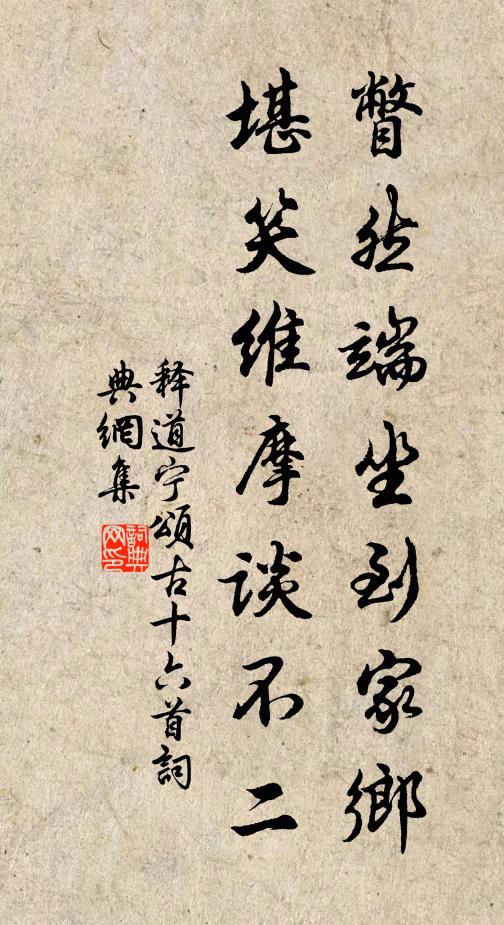 瞥然端坐到家鄉
堪笑維摩談不二
释道宁頌古十六首詞
典網集
詞典
网印